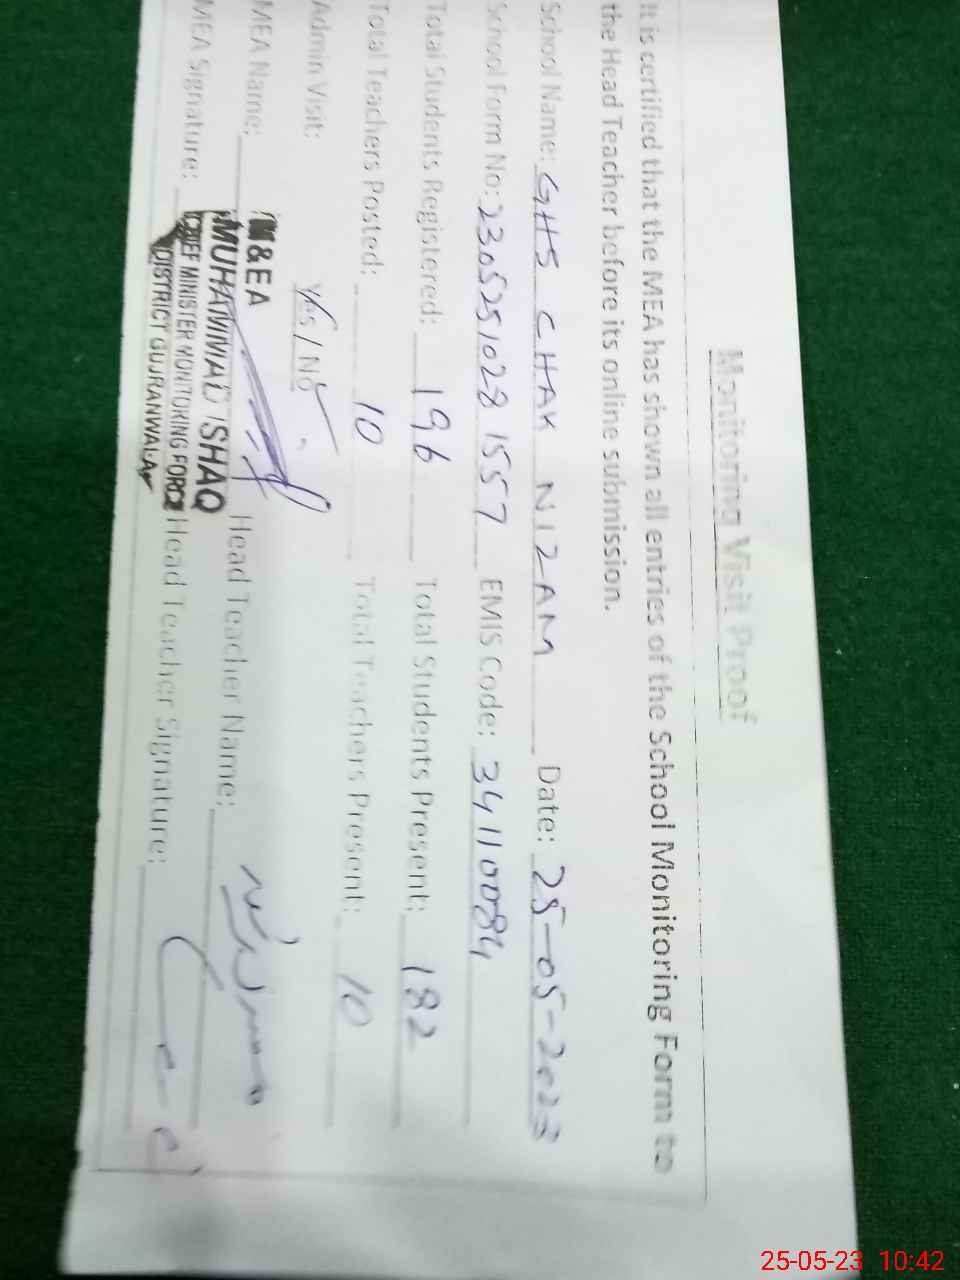 Monitoring Visit Proof
It is certified that the MEA has shown all entries of the School Monitoring Form to
the Head Teacher before its online submission.
School Name: GHS CHAK NIZAM Date: 25-05-2023
School Form No: 2305251028 1557 EMIS Code: 34110084
Total Students Registered: 196 Total Students Present: 182
Total Teachers Posted: 10 Total Teachers Present: 10
Admin Visit: Yes / No
MEA Name: Head Teacher Name:
MEA Signature: Head Teacher Signature:
M&EA
MUHAMMAD ISHAQ
CHIEF MINISTER MONITORING FORCE
DISTRICT GUJRANWALA
25-05-23 10:42